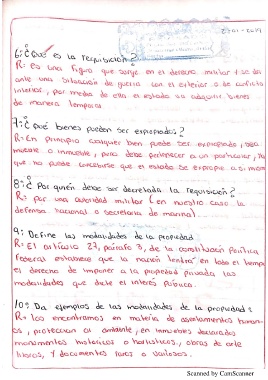 6.¿Qué es la requisición?
R: Es una figura que surge en el derecho militar y se da
ante una situación de guerra con el exterior o de conflicto
interior, por medio de ella el estado va adquirir bienes
de manera temporal
7:¿Qué bienes pueden ser expropiados?
R: En principio cualquier bien puede ser expropiado, sea
mueble o inmueble, pero debe pertenecer a un particular, ya
que no puede concebirse que el estado se expropie a si mismo
8:¿Por quién debe ser decretada la requisición?
R: por una autoridad militar (en nuestro caso la
defensa nacional o secretaria de marina)
9: Define las modalidades de la propiedad.
R: El artículo 27, párrafo 3, de la constitución política
federal establece que la nación tendrá en todo el tiempo
el derecho de imponer a la propiedad privada las
modalidades que dicte el interés público.
10: Da ejemplos de las modalidades de la propiedad:
R: los encontramos en materia de asentamientos human-
os, protección al ambiente, en inmuebles declarados
monumentos históricos o artísticos, obras de arte
libros, y documentos raros o valiosos.
Scanned by CamScanner